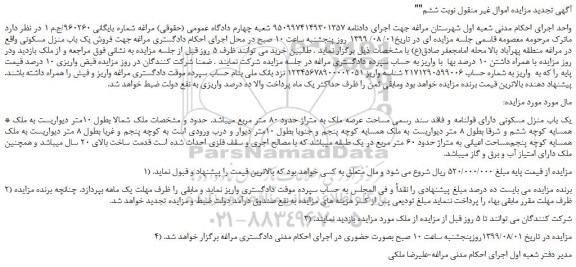 آگهی تجدید مزایده اموال غیر منقول نوبت ششم""
واحد اجرای احکام مدنی شعبه اول شهرستان مراغه جهت اجرای دادنامه ۹۵۰۹۹۷۴۱۴۹۲۰۱۲۵۷ شعبه چهارم دادگاه عمومی (حقوقی) مراغه شماره بایگانی ۹۶۰۲۶۰/ج۱م در نظر دارد
ماترک مرحومه معصومه قاسمی جلسه مزایده ای در تاریخ ۱۳۹۹/۰۸/۰۱ روز پنجشنبه ساعت ۱۰ صبح در محل اجرای احکام دادگستری مراغه جهت فروش یک باب منزل مسکونی واقع
در مراغه منطقه پهرآباد بالا محله امامجعفر صادق(ع) با مشخصات ذیل برگزار نماید . طالبین خرید می توانند ظرف ۵ روز قبل از جلسه مزایده به نشانی فوق مراجعه و از ملک بازدید ودر
روز مزایده با همراه داشتن ۱۰ درصد بها با واریز به حساب سپرده دادگستری مراغه در جلسه مزایده شرکت نمایند . ضمنا شرکت کنندگان در روز مزایده فیش واریزی ۱۰ درصد قیمت
پایه را که به واریز به شماره حساب ۲۱۷۱۲۹۰۵۹۹۰۰۶ شناسه واریز ۱۲۳۴۵۶۷۸۹۰۰۰۰۲۰۵۱ نزد بانک ملی بنام حساب سپرده موقت دادگستری مراغه واریز و فیش را همراه داشته باشند.
پیشنهاد دهنده بالاترین قیمت برنده مزایده خواهد بود ومابقی ثمن را ظرف حداکثر یک ماه پرداخت والا ده درصد واریزی به نفع دولت ضبط خواهد شد.
مال مورد مورد مزایده:
یک باب منزل مسکونی دارای قولنامه و فاقد سند رسمی مساحت عرصه ملک به متراژ حدود ۸۰ متر مربع میباشد. حدود و مشخصات ملک شمالا بطول ۱۰متر دیواریست به ملک *
همسایه کوچه ششم و شرقا بطول ۸ متر دیواریست به ملک همسایه کوچه پنجم و جنوبا بطول ۱۰متر دیوار و درب ورودی است به کوچه پنجم و غربا بطول ۸ متر دیواریست به ملک
همسایه کوچه پنجم،مساحت اعیانی به متراژ حدود ۶۰ متر مربع در یک طبقه میباشد که با مصالح اجری و سقف فلزی احداث شده است قدمت ساخت بالای ۲۰ سال میباشد و همچنین
ملک دارای امتیاز آب و برق و گاز میباشد.
مزایده از قیمت پایه مبلغ ۵۲۰/۰۰۰/۰۰۰ ریال شروع می شود و مال متعلق به کسی خواهد بود که بالاترین قیمت را پیشنهاد و قبول نماید. (۱
برنده مزایده می بایست ده درصد مبلغ پیشنهادی را نقداً و فی المجلس به حساب سپرده موقت دادگستری واریز نماید و مابقی را ظرف مهلت یک ماهه بپردازد. چنانچه برنده مزایده (۲
ظرف مهلت مقرر مابقی بهاء را پرداخت ننماید مبلغ تودیعی پس از کسر هزینه های مزایده به نفع صندوق درآمد دولت ضبط و مزایده تجدید خواهد شد.
شرکت کنندگان می توانند تا ۵ روز قبل از مزایده از ملک مورد مزایده بازدید نمایند. (۳
مزایده در تاریخ ۱۳۹۹/۰۸/۰۱روزپنجشنبه ساعت ۱۰ صبح بصورت حضوری در اجرای احکام مدنی دادگستری مراغه برگزار خواهد شد. (۴
مدیر دفتر شعبه اول اجرای احکام مدنی مراغه-علیرضا ملکی